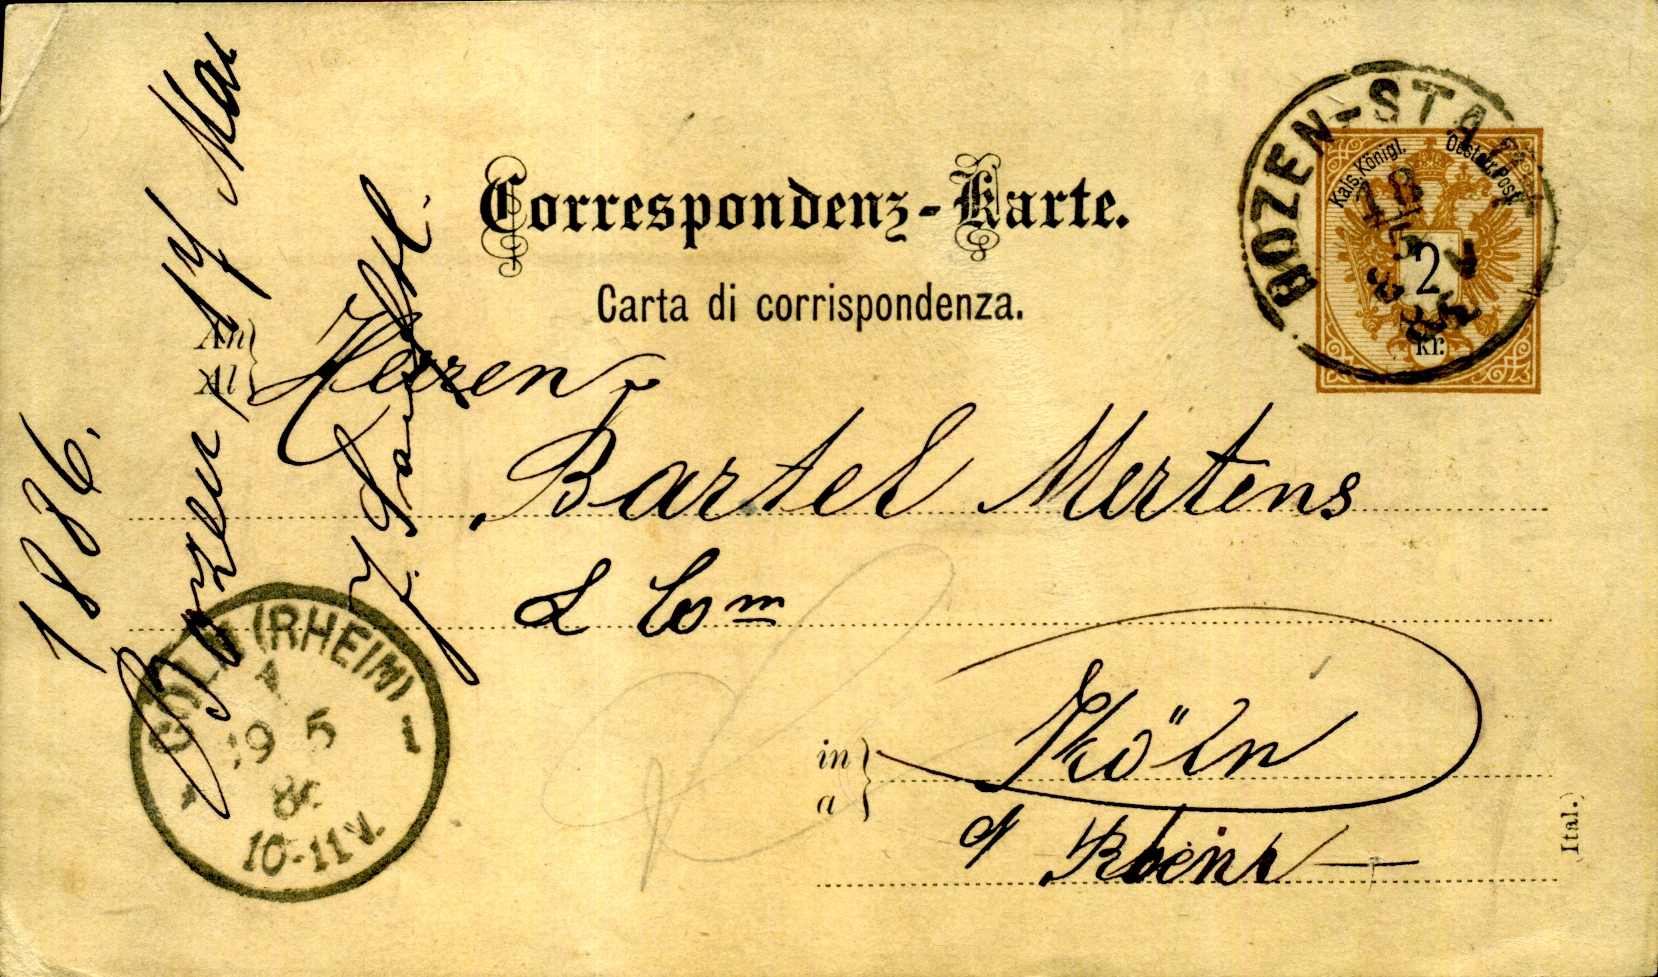 Correspondenz-Karte.
Carta di corrispondenza.
Kais. Königl. Oesterr. Post
2
kr.
BOZEN-STADT
18
5
An
Al
Herren
Bartel Mertens
& Com
in
a
Köln
a/ Rhein
Ital.)
Bozen, 17 Mai
1886.
CÖLN (RHEIN)
A
19 5
86
10-11 V.
1